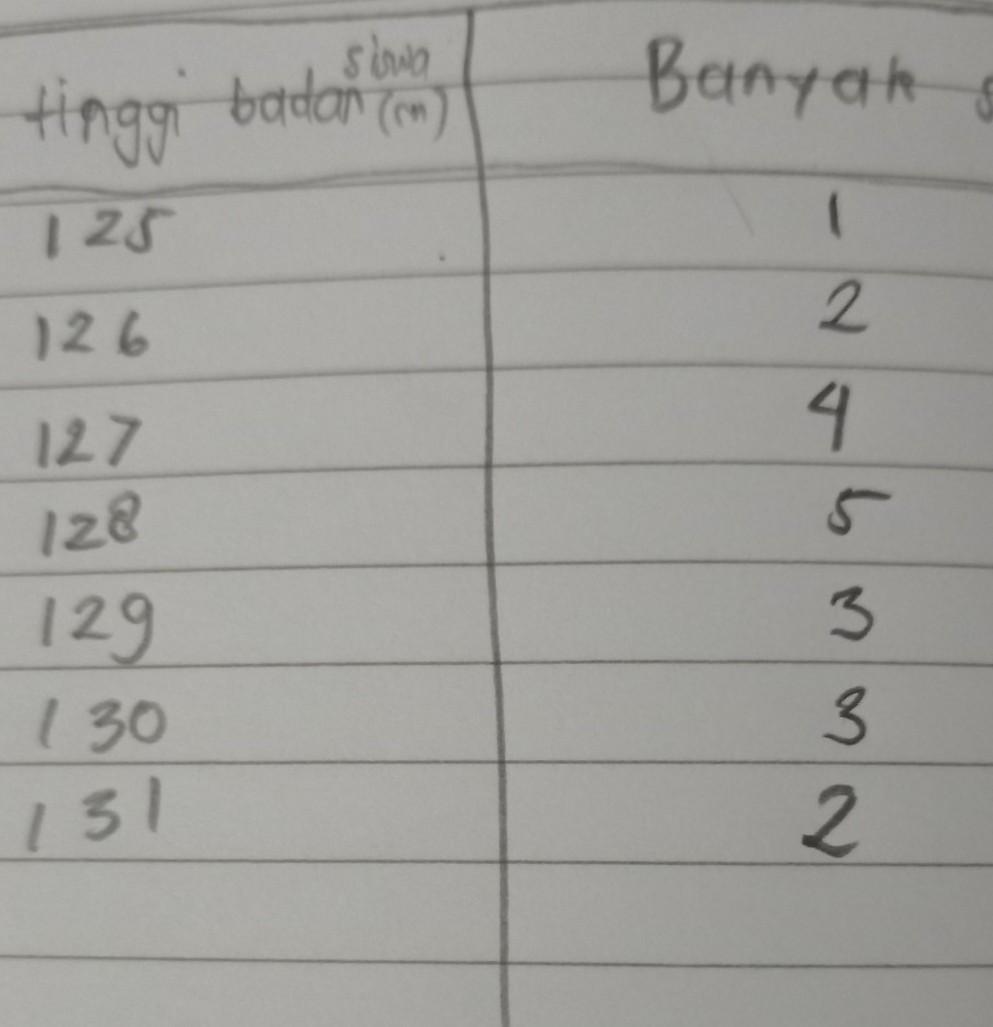 tinggi badan siswa (cm) Banyak s
125 1
126 2
127 4
128 5
129 3
130 3
131 2